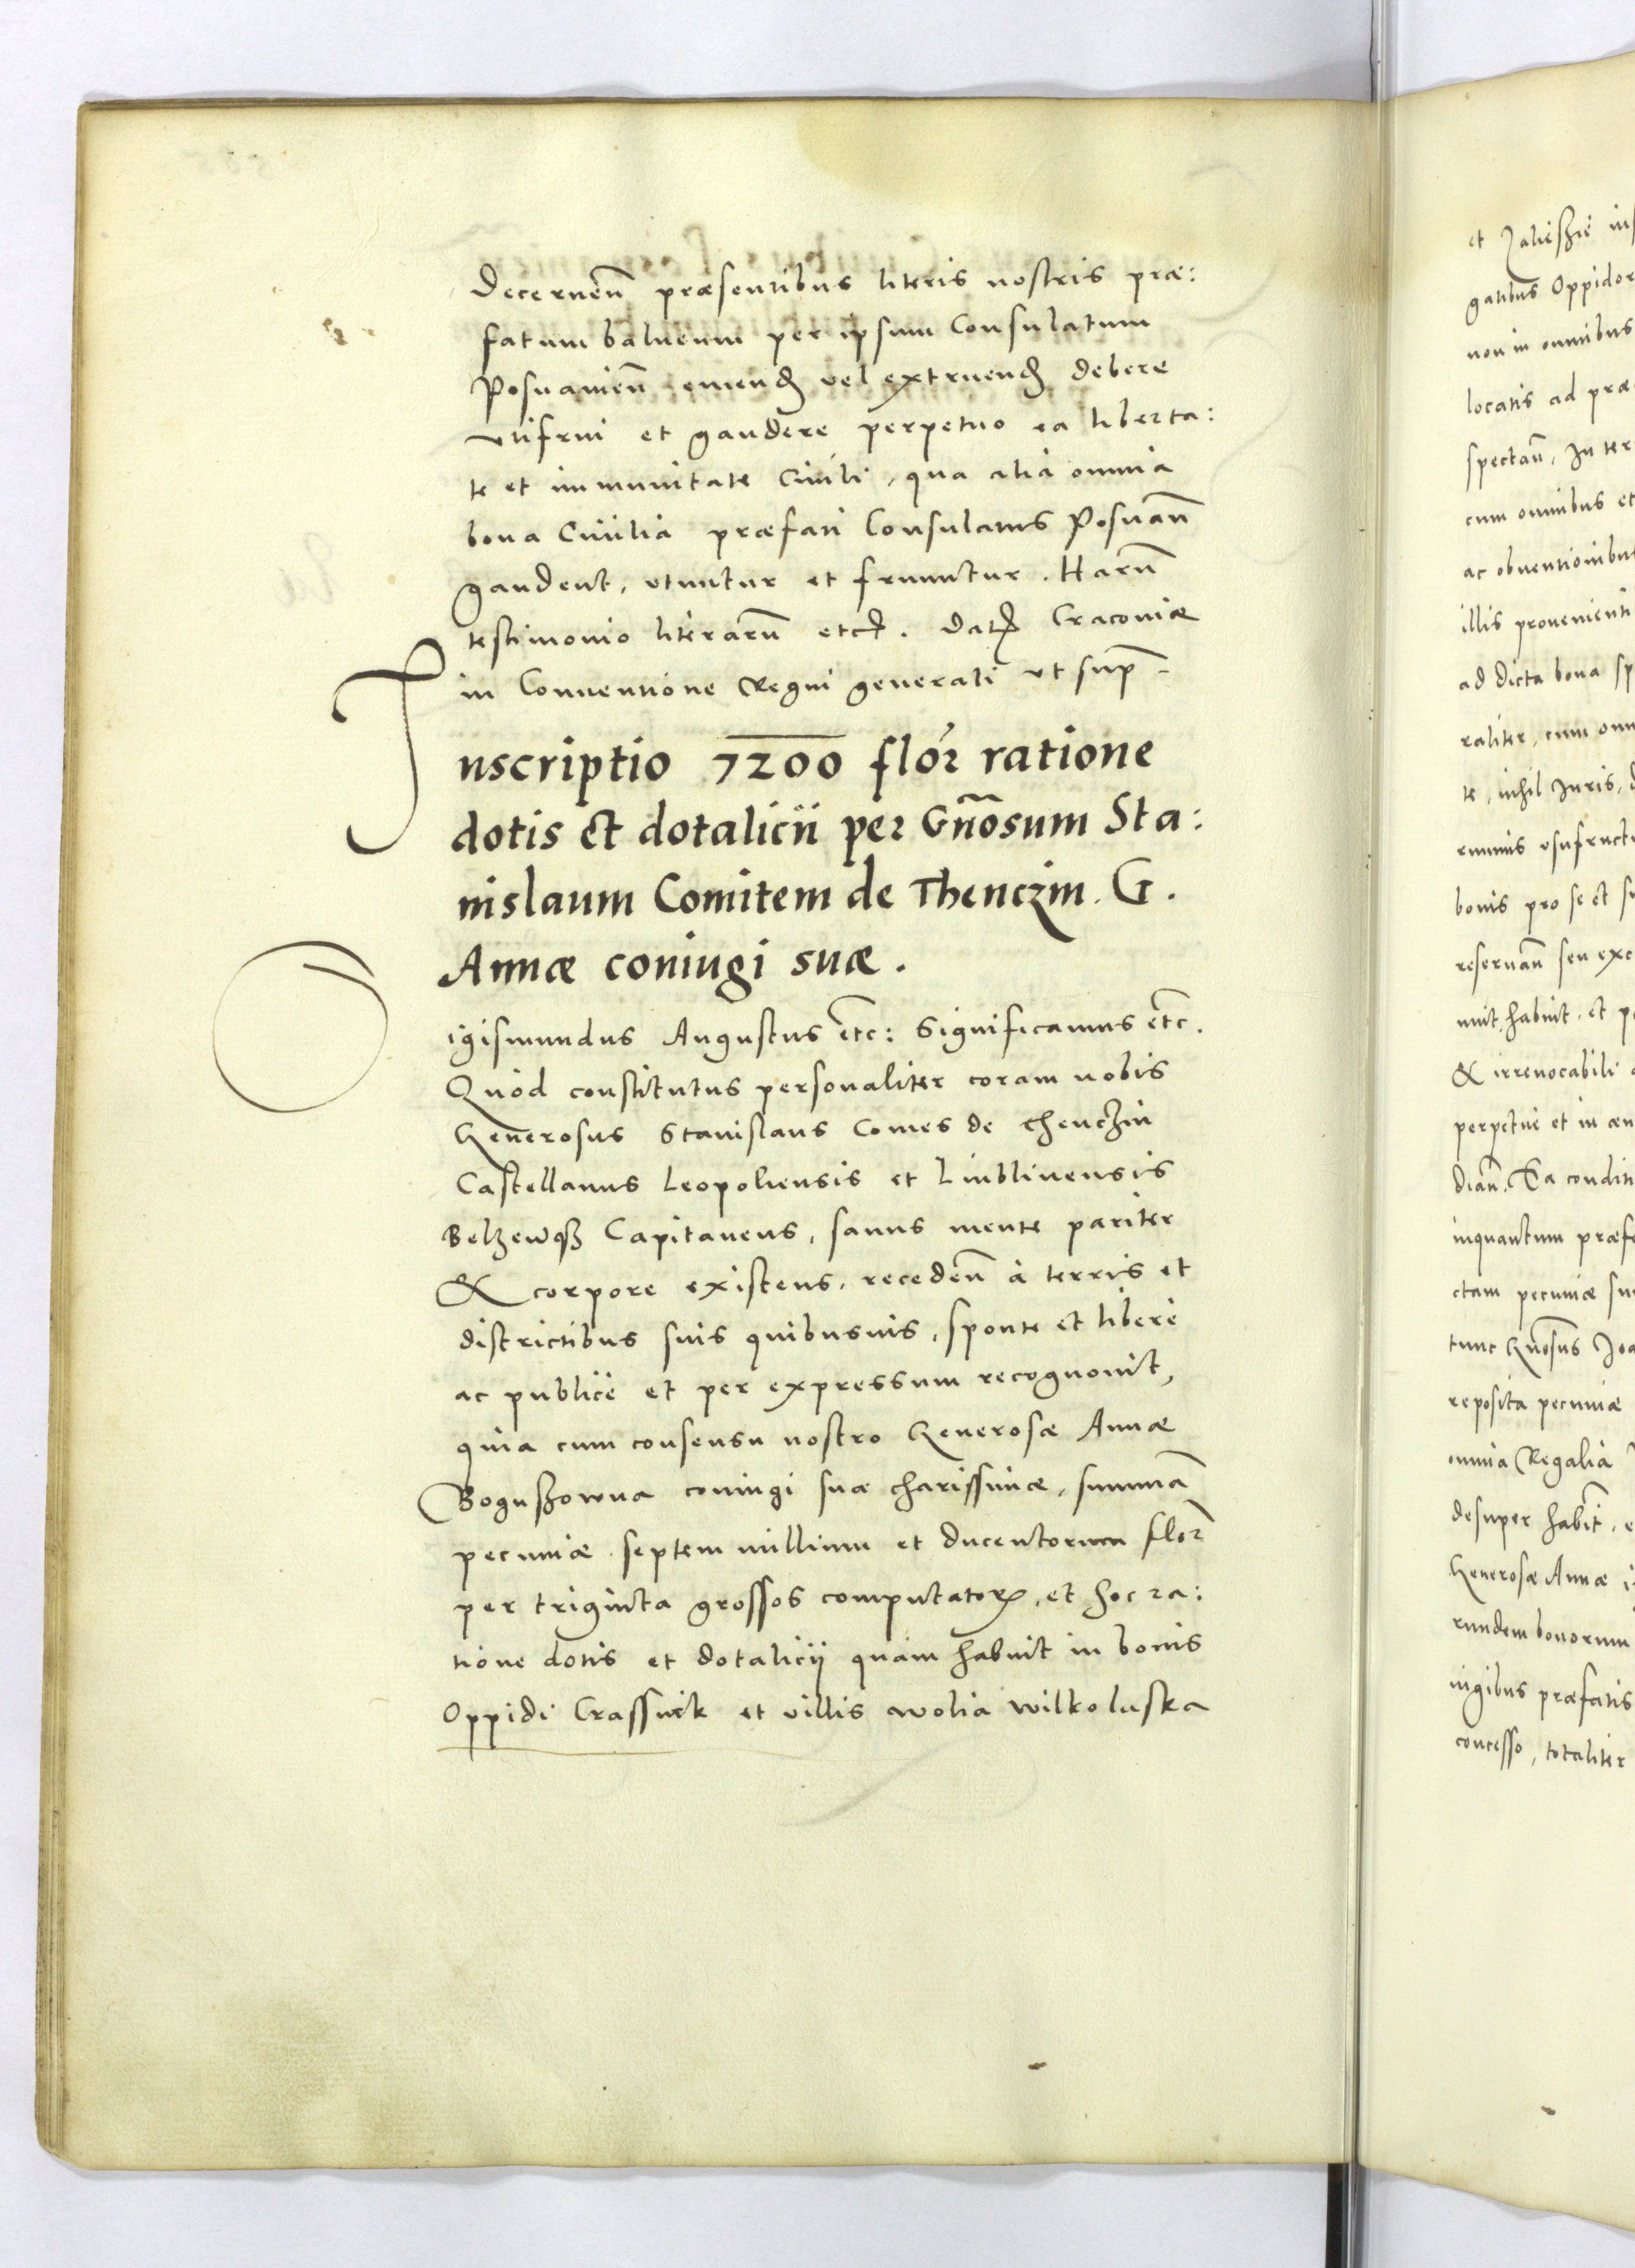 Decernen̄ præsentibus literis nostris præ:
fatum balneum per ipsum Consulatum
Posnanien̄ emend vel extruend debere
utifrui et gaudere perpetuo ea liberta:
te et immunitate Ciuili, qua alia omnia
bona Ciuilia præfati Consulatus Posnan̄
gaudent, utuntur et fruuntur. Harū
testimonio literarū etc. Dat Cracoviæ
in Conuentione Regni generali ut sup̄.
Inscriptio 7200 flor ratione
dotis et dotalicii per Gn̄osum Sta:
nislaum Comitem de Thenczin. G.
Annæ coniugi suæ.
igismundus Augustus etc: Significamus etc.
Quod constitutus personaliter coram nobis
Generosus Stanislaus Comes de Thenczin
Castellanus Leopoliensis et Liublinensis
Capitaneus, sanus mente pariter
& corpore existens, receden̄ à terris et
districtibus suis quibusuis, sponte et liberè
ac publicè et per expressum recognouit,
quia cum consensu nostro Generosæ Annæ
Boguszowna coniugi suæ charissimæ, summā
pecuniæ septem millium et ducentorum flor
per triginta grossos computator, et hoc ra:
tione dotis et dotalicij quam habuit in bonis
Oppidi Crassnik et villis Wolia Wilkolaska
et Zalieszie
gatibus Oppidor
non in omnibus
locatis ad præ
spectan̄, In ter
cum omnibus et
ac obuentionibus
illis prouenienti
ad dicta bona sp
raliter, cum om
te, nihil Iuris,
usufruct
bonis pro se et
reseruan̄ seu exc
nuit, habuit, et
& irreuocabili
perpetuè et in æu
dian̄. Ea conditi
inquantum præf
ctam pecuniæ
tunc Gn̄osus
reposita pecuniæ
omnia Regalia
desuper habīt,
Generosæ Annæ
rundem bonorum
iugibus præfatis
concesso, totaliter